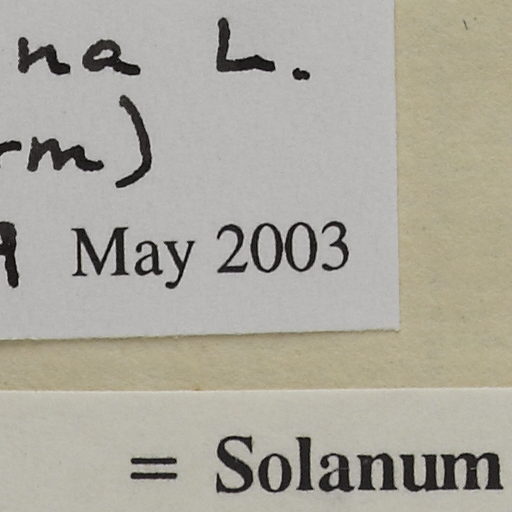 na L.
rm)
May 2003
= Solanum